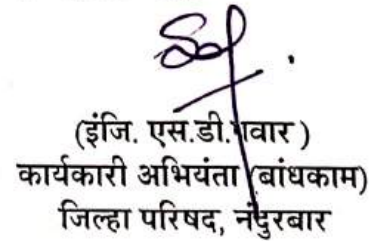 (इंजि. एस.डी.पवार )
कार्यकारी अभियंता (बांधकाम)
जिल्हा परिषद, नंदुरबार